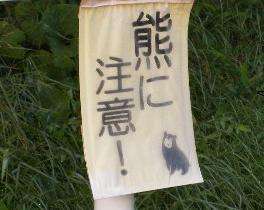 熊に
注意！